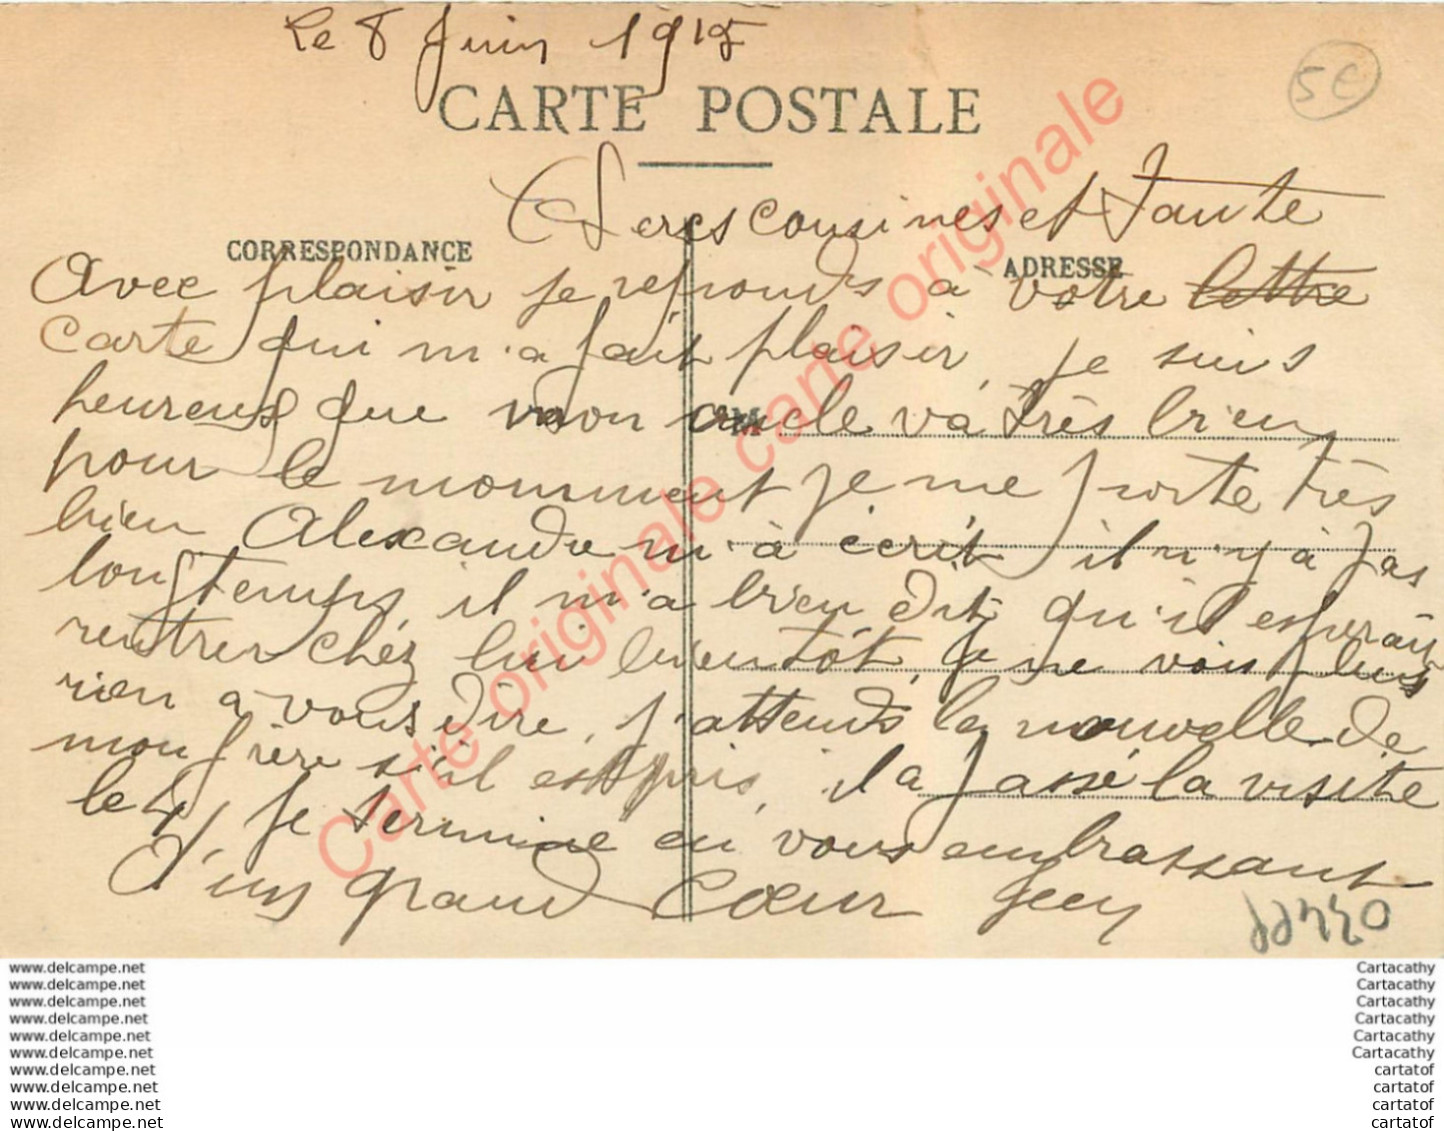 Le 8 Juin 1915
5€
CARTE POSTALE
Cheres cousines et Tante
CORRESPONDANCE
ADRESSE
Avec plaisir je reponds a votre lettre
carte qui m'a fait plaisir, je suis
heureux que mon oncle va très bien
pour le momment je me porte très
bien Alexandre m'à écrit il n'y à pas
longtemps il m'a bien dit qu'il esperait
rentrer chéz lui bientôt, je ne vois plus
rien a vous dire, j'attends la nouvelle de
mon frère s'il est pris, il a passé la visite
le 4, Je termine en vous embrassant
d'un grand Cœur
Carte originale carte originale
www.delcampe.net
www.delcampe.net
www.delcampe.net
www.delcampe.net
www.delcampe.net
www.delcampe.net
www.delcampe.net
www.delcampe.net
www.delcampe.net
www.delcampe.net
Cartacathy
Cartacathy
Cartacathy
Cartacathy
Cartacathy
Cartacathy
cartatof
cartatof
cartatof
cartatof